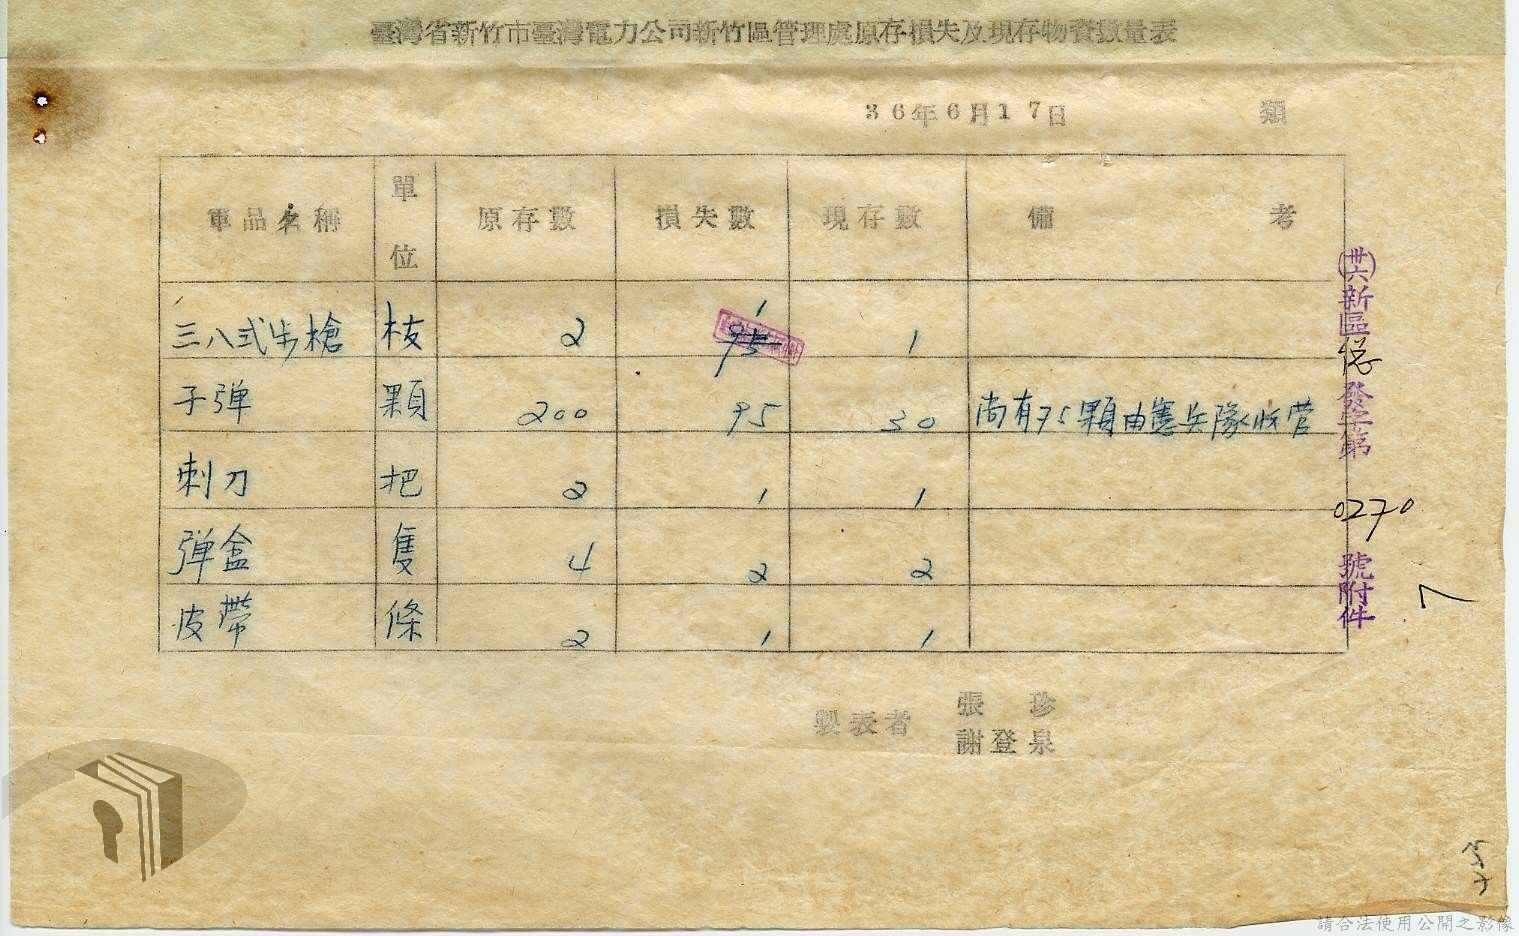 臺灣省新竹市臺灣電力公司新竹區管理處原存損失及現存物資數量表
36年6月17日 類
軍品名稱 單位 原存數 損失數 現存數 備考
三八式步槍 枝 2 1 95 1
子弹 顆 200 95 30 尚有75顆由憲兵隊收管
刺刀 把 2 1 1
弹盒 隻 4 2 2
皮帶 條 2 1 1
製表者 張珍
謝登泉
(卅六)新區總發字第0270號附件
請合法使用公開之影像